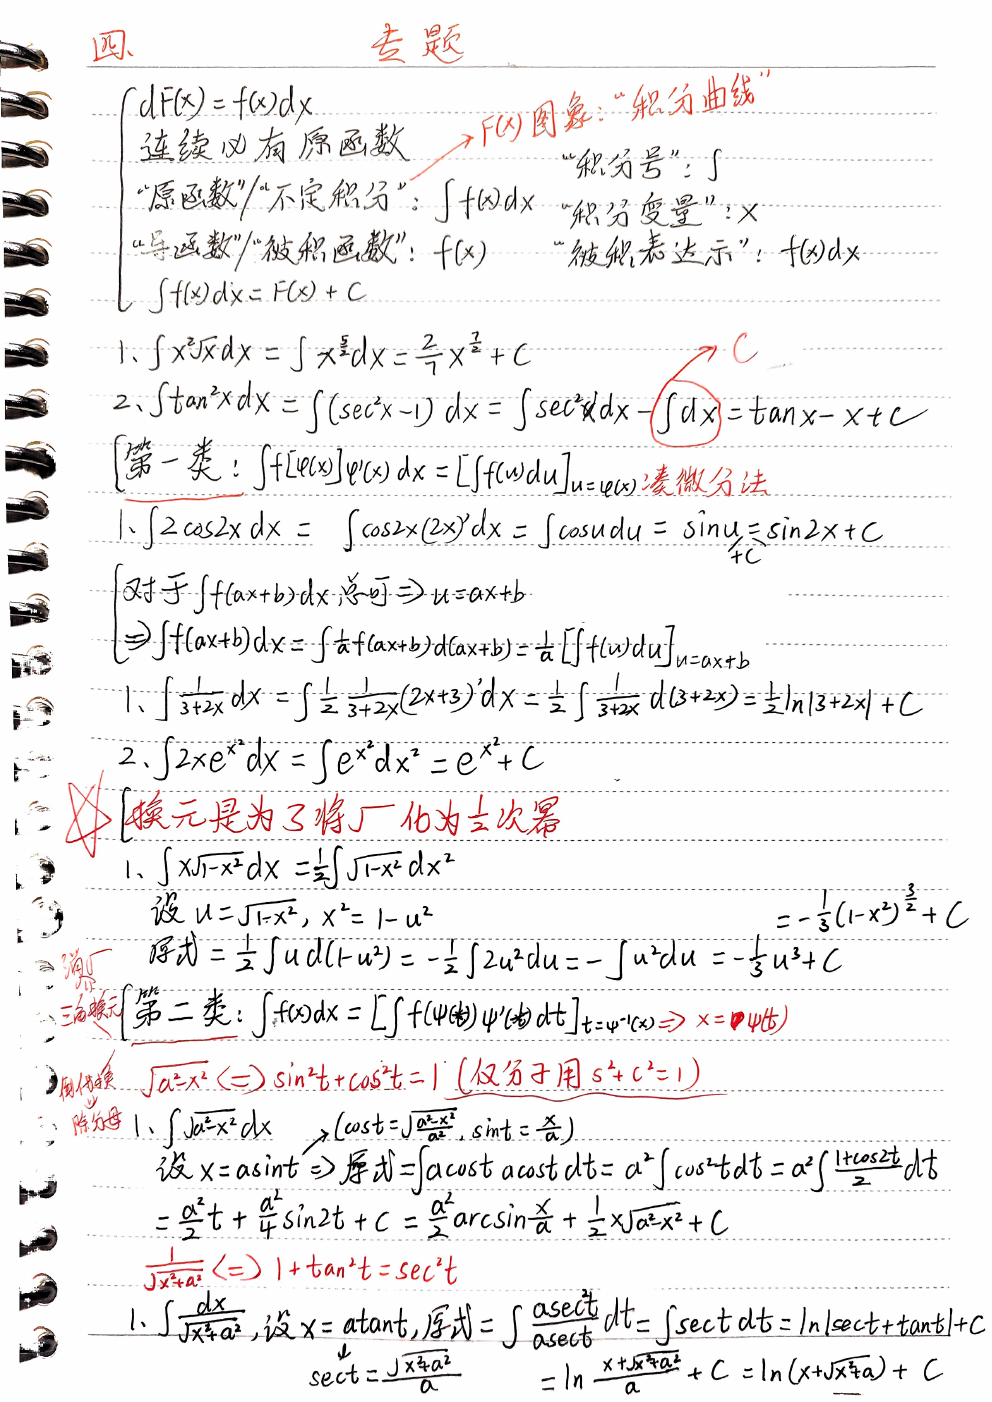 四、 专题
dF(x) = f(x)dx
连续必有原函数 → F(x)图象："积分曲线"
"积分号"：∫
"原函数"/"不定积分"：∫f(x)dx "积分变量"：x
"导函数"/"被积函数"：f(x) "被积表达示"：f(x)dx
∫f(x)dx = F(x) + C
1、∫x²√x dx = ∫x^{5/2}dx = 2/7 x^{7/2} + C
→ C
2、∫tan²x dx = ∫(sec²x-1) dx = ∫sec²x dx - ∫dx = tanx - x + C
第一类：∫f[φ(x)]φ'(x) dx = [∫f(u)du]_{u=φ(x)} 凑微分法
1、∫2cos2x dx = ∫cos2x(2x)'dx = ∫cosudu = sinu +C = sin2x + C
对于∫f(ax+b)dx 总可 => u=ax+b
=> ∫f(ax+b)dx = ∫1/a f(ax+b)d(ax+b) = 1/a [∫f(u)du]_{u=ax+b}
1、∫1/(3+2x) dx = ∫1/2 1/(3+2x) (2x+3)'dx = 1/2 ∫1/(3+2x) d(3+2x) = 1/2 ln|3+2x| + C
2、∫2xe^{x²}dx = ∫e^{x²}dx² = e^{x²} + C
☆ 换元是为了将√ 化为1/2次幂
1、∫x√(1-x²) dx = 1/2∫√(1-x²) dx²
设 u = √(1-x²), x² = 1-u² = -1/3(1-x²)^{3/2} + C
原式 = 1/2∫u d(1-u²) = -1/2∫2u²du = -∫u²du = -1/3 u³ + C
三角换元
第二类：∫f(x)dx = [∫f(ψ(t))ψ'(t)dt]_{t=ψ⁻¹(x)} => x = ψ(t)
倒代换
√(a²-x²) <=> sin²t + cos²t = 1 (仅分子用 s²+c²=1)
除分母
1、∫√(a²-x²) dx → (cost = √((a²-x²)/a²), sint = x/a)
设 x = asint => 原式 = ∫acost acost dt = a²∫cos²tdt = a²∫(1+cos2t)/2 dt
= a²/2 t + a²/4 sin2t + C = a²/2 arcsin x/a + 1/2 x√(a²-x²) + C
1/√(x²+a²) <=> 1+tan²t = sec²t
1、∫dx/√(x²+a²), 设 x = atant, 原式 = ∫asec²t/asect dt = ∫sect dt = ln|sect+tant| + C
↓
sect = √(x²+a²)/a = ln (x+√(x²+a²))/a + C = ln(x+√(x²+a)) + C